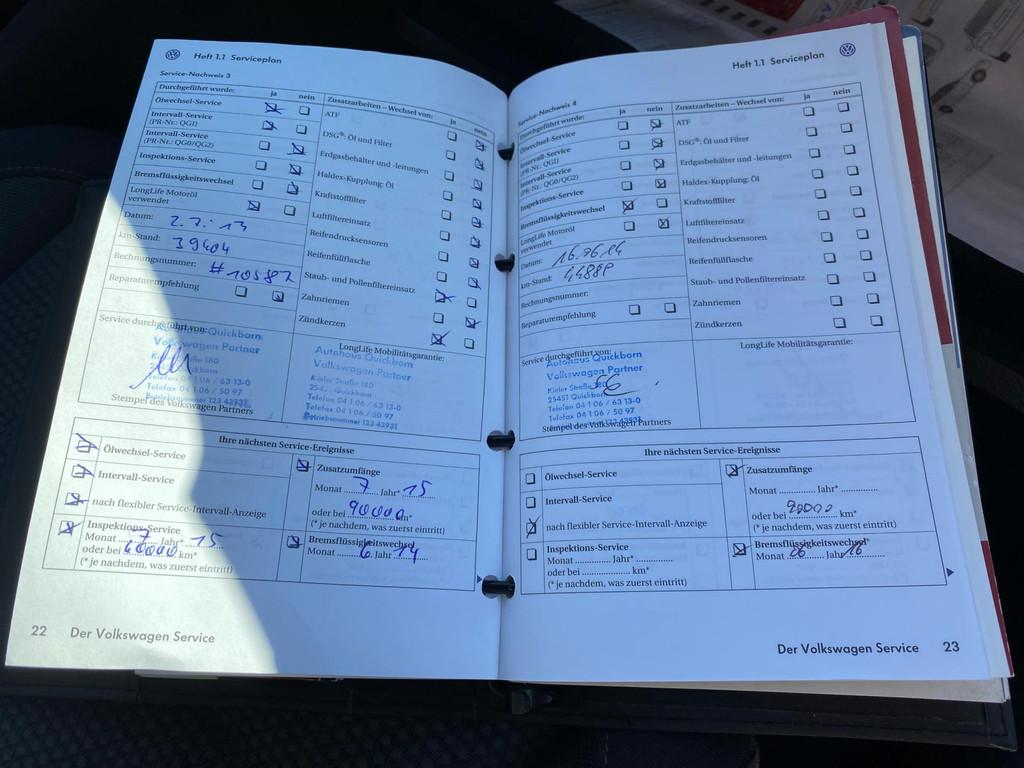 Heft 1.1 Serviceplan
Service-Nachweis 3
Durchgeführt wurde: ja nein
Ölwechsel-Service
Intervall-Service
(PR-Nr.: QG1)
Intervall-Service
(PR-Nr.: QG0/QG2)
Inspektions-Service
Bremsflüssigkeitswechsel
LongLife Motoröl
verwendet
Datum: 2.7.13
km-Stand: 39404
Rechnungsnummer: #10587
Reparaturempfehlung
Zusatzarbeiten – Wechsel von: ja nein
ATF
DSG®: Öl und Filter
Erdgasbehälter und -leitungen
Haldex-Kupplung: Öl
Kraftstofffilter
Luftfiltereinsatz
Reifendrucksensoren
Reifenfüllflasche
Staub- und Pollenfiltereinsatz
Zahnriemen
Zündkerzen
Service durchgeführt von:
Autohaus Quickborn
Volkswagen Partner
Kieler Straße 180
25451 Quickborn
Telefon 04 1 06 / 63 13-0
Telefax 04 1 06 / 50 97
Betriebsnummer 123 43931
Stempel des Volkswagen Partners
LongLife Mobilitätsgarantie:
Autohaus Quickborn
Volkswagen Partner
Kieler Straße 180
25451 Quickborn
Telefon 04 1 06 / 63 13-0
Telefax 04 1 06 / 50 97
Betriebsnummer 123 43931
Ihre nächsten Service-Ereignisse
Ölwechsel-Service
Intervall-Service
nach flexibler Service-Intervall-Anzeige
Inspektions-Service
Monat 7 Jahr* 15
oder bei 60000 km*
(* je nachdem, was zuerst eintritt)
Zusatzumfänge
Monat 7 Jahr* 15
oder bei 90000 km*
(* je nachdem, was zuerst eintritt)
Bremsflüssigkeitswechsel
Monat 6 Jahr 14
22 Der Volkswagen Service
Heft 1.1 Serviceplan
Service-Nachweis 4
Durchgeführt wurde: ja nein
Ölwechsel-Service
Intervall-Service
(PR-Nr.: QG1)
Intervall-Service
(PR-Nr.: QG0/QG2)
Inspektions-Service
Bremsflüssigkeitswechsel
LongLife Motoröl
verwendet
Datum: 16.06.14
km-Stand:
Rechnungsnummer:
Reparaturempfehlung
Zusatzarbeiten – Wechsel von: ja nein
ATF
DSG®: Öl und Filter
Erdgasbehälter und -leitungen
Haldex-Kupplung: Öl
Kraftstofffilter
Luftfiltereinsatz
Reifendrucksensoren
Reifenfüllflasche
Staub- und Pollenfiltereinsatz
Zahnriemen
Zündkerzen
Service durchgeführt von:
Autohaus Quickborn
Volkswagen Partner
Kieler Straße 180
25451 Quickborn
Telefon 04 1 06 / 63 13-0
Telefax 04 1 06 / 50 97
Betriebsnummer 123 43931
Stempel des Volkswagen Partners
LongLife Mobilitätsgarantie:
Ihre nächsten Service-Ereignisse
Ölwechsel-Service
Intervall-Service
nach flexibler Service-Intervall-Anzeige
Inspektions-Service
Monat Jahr*
oder bei km*
(* je nachdem, was zuerst eintritt)
Zusatzumfänge
Monat Jahr*
oder bei 90000 km*
(* je nachdem, was zuerst eintritt)
Bremsflüssigkeitswechsel*
Monat 06 Jahr 16
Der Volkswagen Service 23